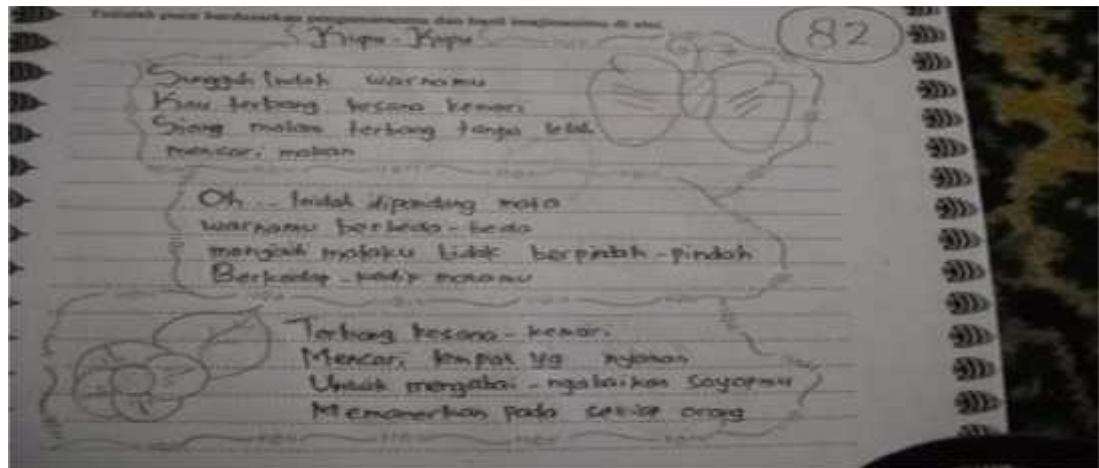 Tulislah puisi berdasarkan pengamatanmu dan hasil imajinasimu di sini.
82
Kupu-Kupu
Sungguh Indah warnamu
Kau terbang kesana kemari
Siang malam terbang tanpa lelah
mencari makan
Oh... Indah dipandang mata
warnamu berbeda-beda
menjadi mataku tidak berpindah-pindah
Berkedip-kedip
Terbang kesana-kemari
Mencari tempat yg nyaman
Untuk
Memamerkan pada setiap orang